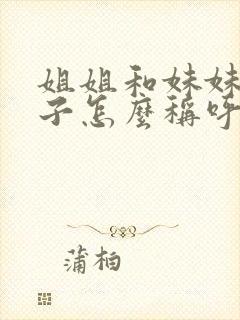 姐姐和妹妹
子怎麼稱呼
蒲柏